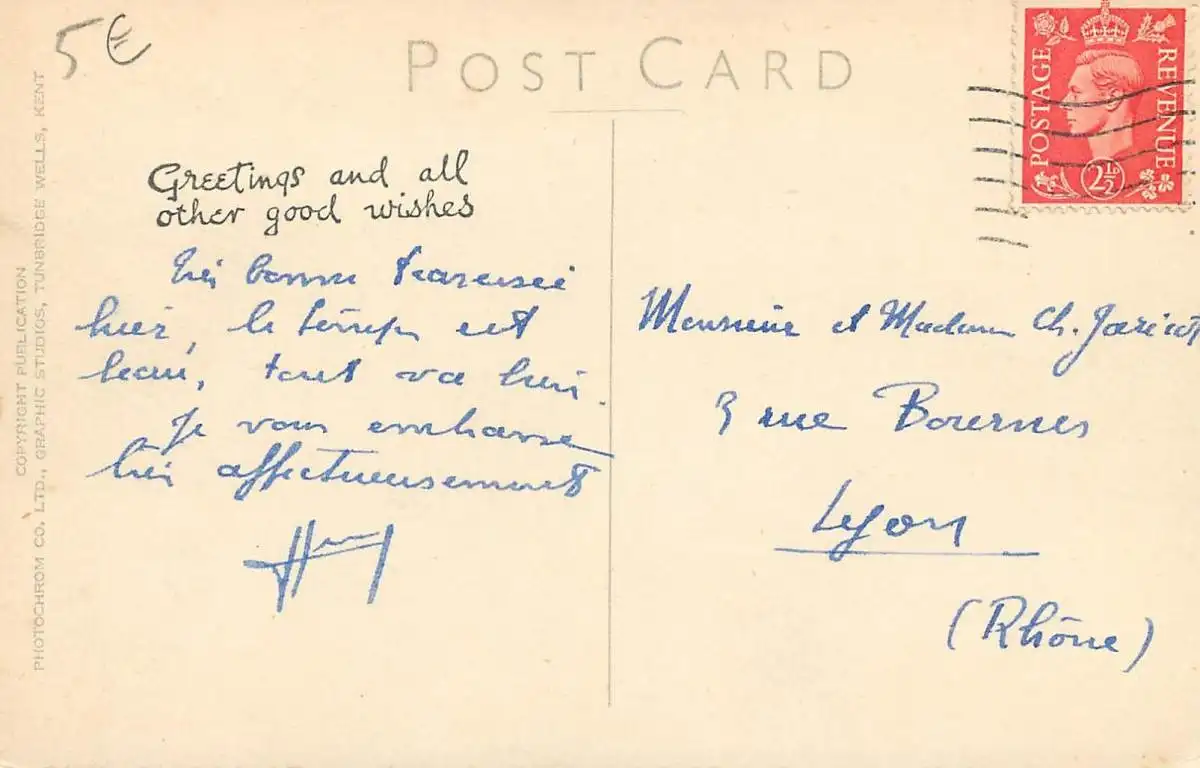 5€
POST CARD
POSTAGE
REVENUE
2½D
COPYRIGHT PUBLICATION
PHOTOCHROM CO. LTD., GRAPHIC STUDIOS, TUNBRIDGE WELLS, KENT
Greetings and all
other good wishes
Très bonne traversée
hier, le temps est
beau, tout va bien.
Je vous embrasse
bien affectueusement
Monsieur et Madame Ch. Jaricot
3 rue Bournes
Lyon
(Rhône)